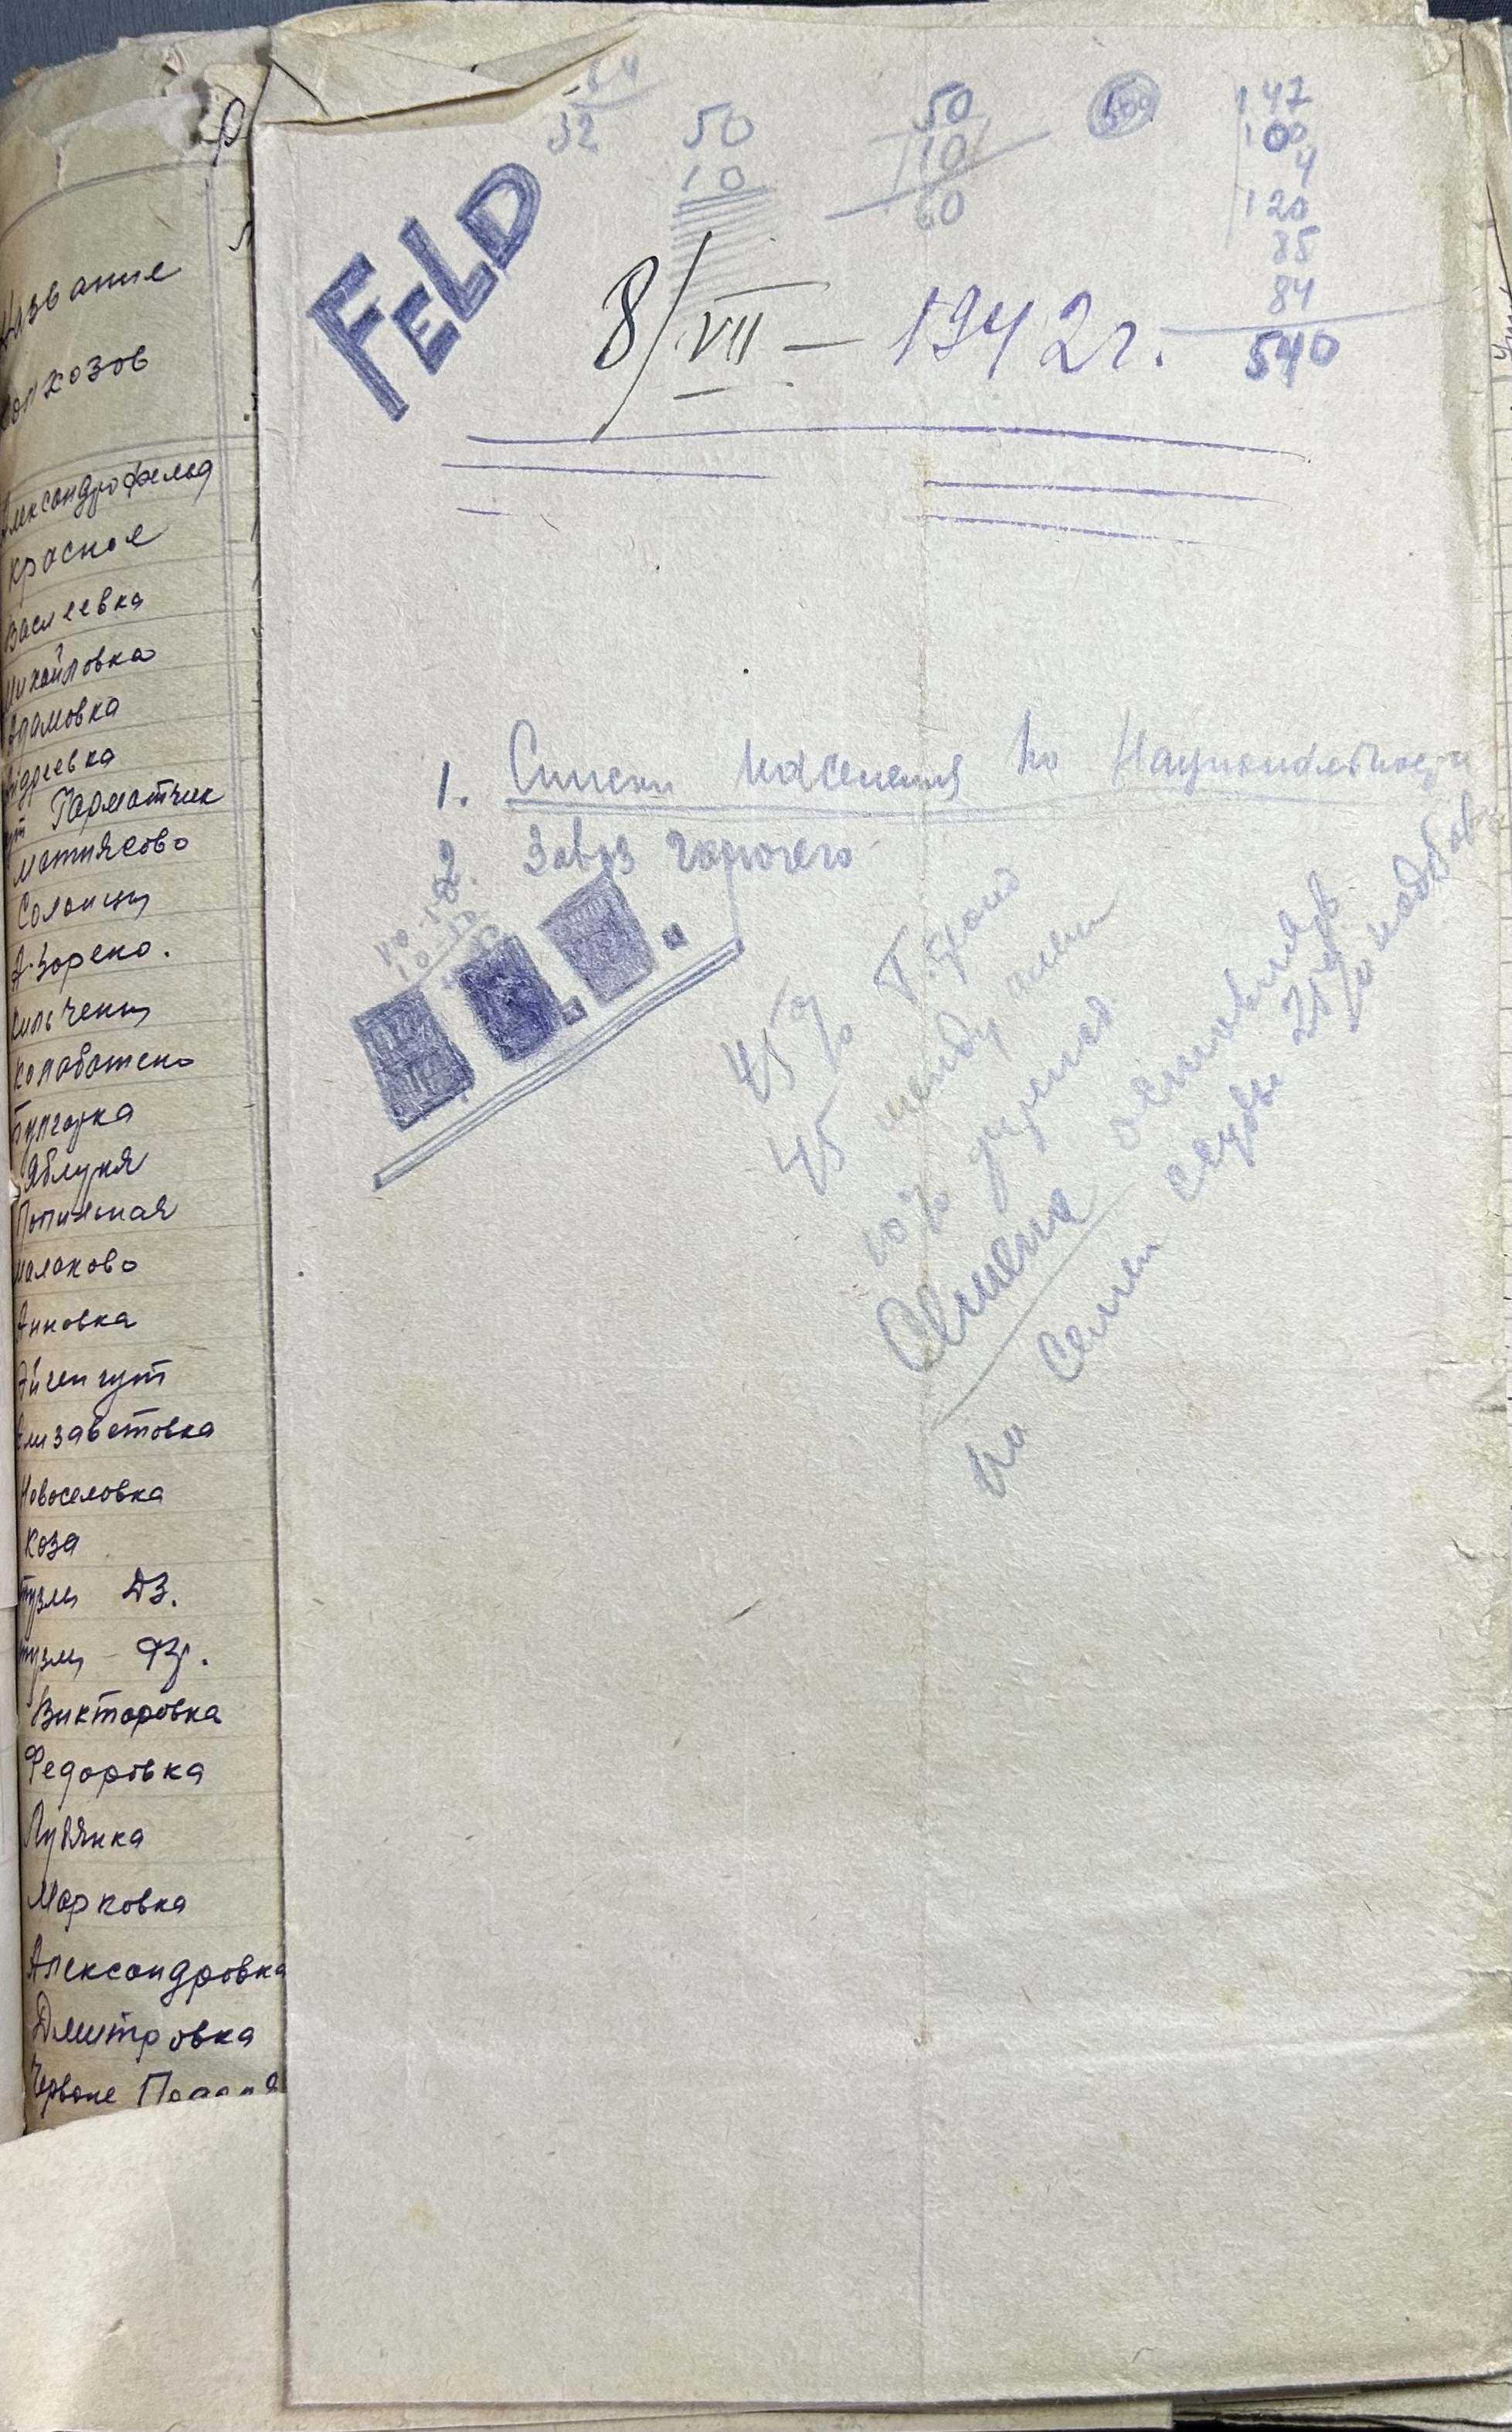 Название
колхозов
Александрофельд
Красное
Васлеевка
Михайловка
Адамовка
Андреевка
Гарматчик
Матиясово
Солонцы
А. Зарено.
Кольченц
Колаботено
Булгарка
Яблуня
Попильная
Малаково
Анновка
Айгенгут
Елизаветовка
Новоселовка
Коза
Тузлы ДЗ.
Тузлы Фр.
Викторовка
Федоровка
Лубянка
Марковка
Александровка
Дмитровка
Червоне
64
32
50
10
50
10
60
500
147
100
4
120
85
84
540
FELD
8/VII – 1942 г.
1. Списки населения по Национальности
2. Завоз горючего
45%
45 между
10%
Семена
по семен
25%